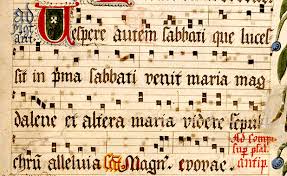 ad
Vespere autem sabbati que luces
sit in p̄ma sabbati venit maria mag
dalene et altera maria videre sepul
chrū alleluia Magn̄. evovae.
antip̄.